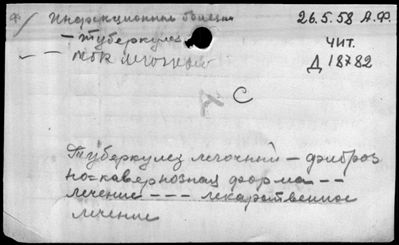 Инфекционные болезни
26.5.58 А.Ф.
— туберкулез
чит.
— мбк легочный
Д 18782
С
Туберкулез легочный — фиброз
но=кавернозная форма --
лечение --- лекарственное
лечение